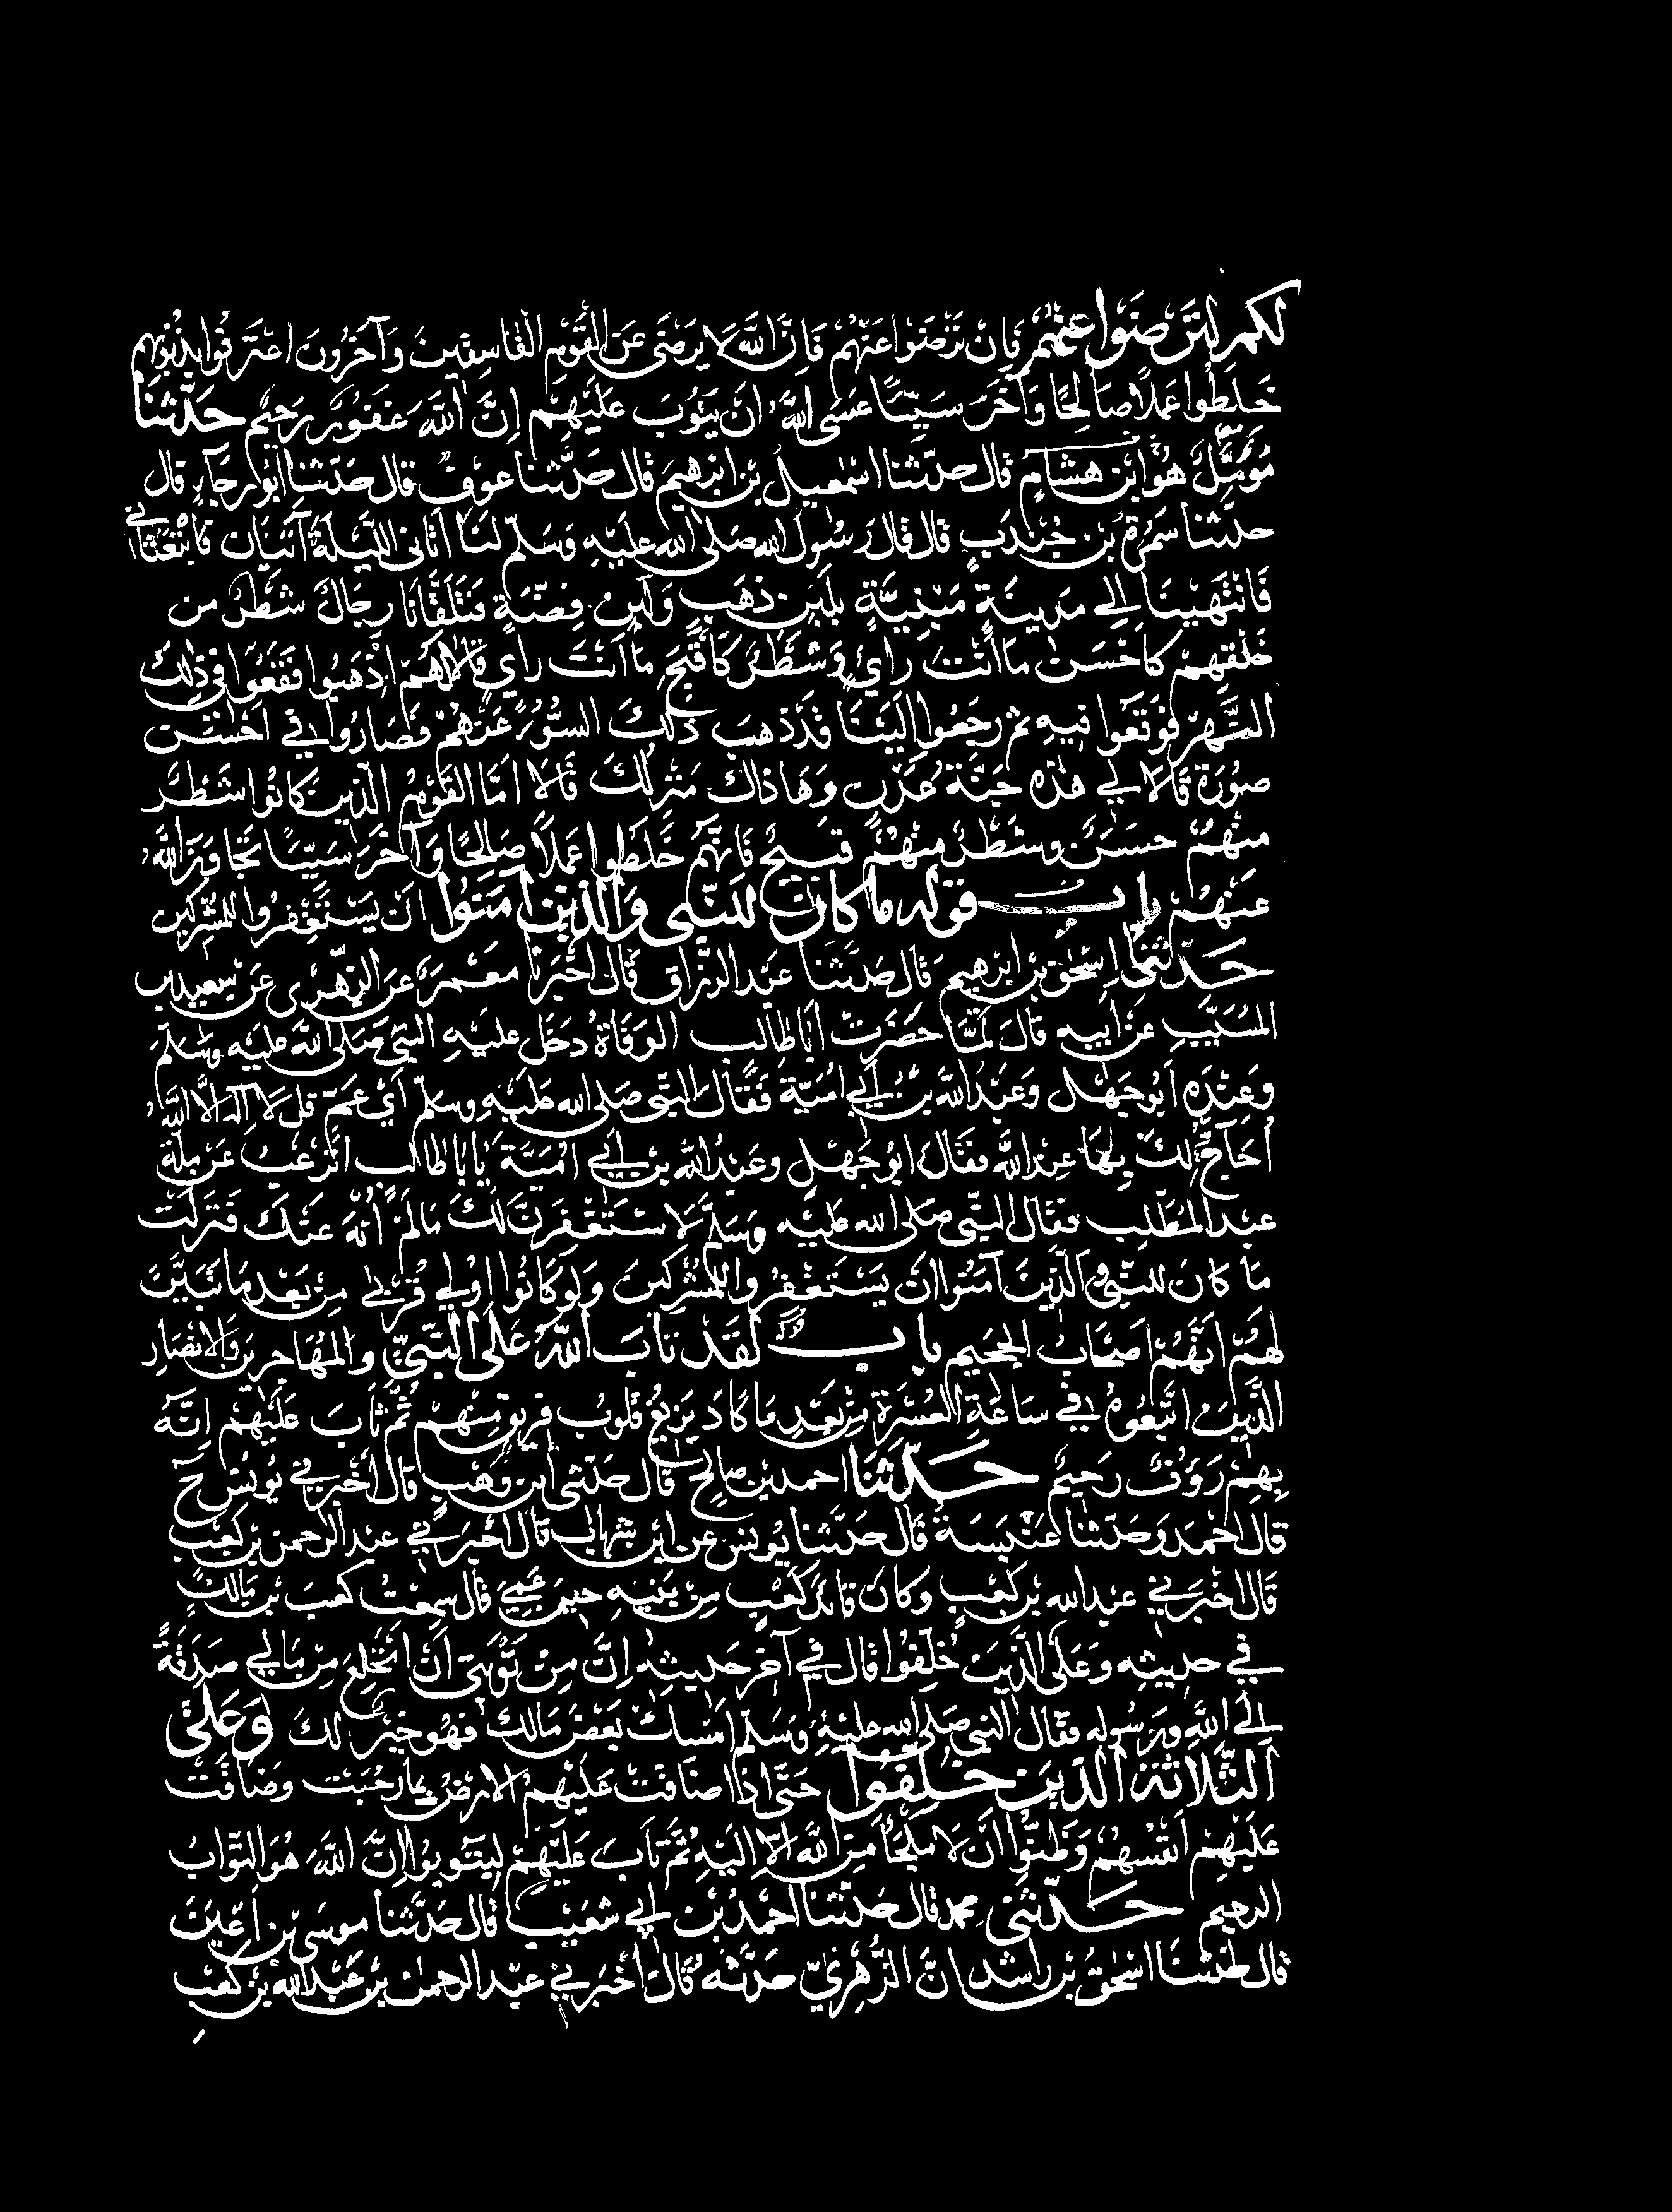 لكم لتَرْضَوْا عنهم فَإِنْ تَرْضَوْا عَنْهُمْ فَإِنَّ اللَّهَ لَا يَرْضَى عَنِ الْقَوْمِ الْفَاسِقِينَ وَآخَرُونَ اعْتَرَفُوا بِذُنُوبِهِم
خَلَطُوا عَمَلًا صَالِحًا وَآخَرَ سَيِّئًا عَسَى اللَّهُ أَنْ يَتُوبَ عَلَيْهِمْ إِنَّ اللَّهَ غَفُورٌ رَحِيمٌ حَدَّثَنَا
مُؤَمَّلٌ هُوَ ابْنُ هِشَامٍ قال حدثنا اسمعيل بن ابرهيم قال حدثنا عوف قال حدثنا ابو رجاءٍ قال
حدثنا سمرة بن جندب قال قال رسول الله صلى الله عليه وسلم لنا أتاني الليلة آتيان فابتعثاني
فَانْتَهَيْنَا إلى مدينةٍ مبنيةٍ بلبن ذهبٍ ولبن فضةٍ فتلقانا رجال شطرٌ من
خلقهم كاحسن ما أنت راءٍ وشطرٌ كاقبح ما أنت راءٍ قالا لهم اذهبوا فقعوا في ذلك
النهر فوقعوا فيه ثم رجعوا إلينا قد ذهب ذلك السوءُ عنهم فصاروا في احسن
صورة قالا لي هذه جنة عدن وهاذاك منزلك قالا أما القوم الذين كانوا شطر
منهم حسن وشطر منهم قبيح فانهم خلطوا عملًا صالحًا وآخر سيئًا تجاوز اللهُ
عنهم باب قوله ما كان للنبي والذين آمنوا ان يستغفروا للمشركين
حدثني اسحق بن ابرهيم قال حدثنا عبد الرزاق قال أخبرنا معمر عن الزهري عن سعيد بن
المسيب عن أبيه قال لما حضرت أبا طالب الوفاة دخل عليه النبي صلى الله عليه وسلم
وعنده أبو جهل وعبد الله بن أبي أمية فقال النبي صلى الله عليه وسلم أي عم قل لا إله إلا اللهُ
أحاج لك بها عند الله فقال ابو جهل وعبد الله بن أبي أمية يا با طالب أترغب عن ملة
عبد المطلب فقال النبي صلى الله عليه وسلم لاستغفرن لك مالم أنه عنك فنزلت
ما كان للنبي والذين آمنوا ان يستغفروا للمشركين ولو كانوا اولي قربى من بعد ما تبين
لهم أنهم اصحاب الجحيم باب لقد تاب الله على النبي والمهاجرين والانصار
الذين اتبعوه في ساعة العسرة من بعد ما كاد يزيغ قلوب فريق منهم ثم تاب عليهم إنه
بهم رؤف رحيم حدثنا احمد بن صالح قال حدثني ابن وهب قال أخبرني يونس ح
قال احمد وحدثنا عنبسة قال حدثنا يونس عن ابن شهاب قال أخبرني عبد الرحمن بن كعب
قال اخبرني عبد الله بن كعب وكان قائد كعب من بنيه حين عمي قال سمعت كعب بن مالك
في حديثه وعلى الذين خلفوا قال في آخر حديثه إن من توبتي أن أنخلع من مالي صدقةً
الى الله ورسوله فقال النبي صلى الله عليه وسلم أمسك بعض مالك فهو خير لك وعلى
الثلاثة الذين خلفوا حتى اذا ضاقت عليهم الارض بما رحبت وضاقت
عليهم أنفسهم وظنوا أن لا ملجأ من الله الا اليه ثم تاب عليهم ليتوبوا ان الله هو التواب
الرحيم حدثني محمد قال حدثنا احمد بن أبي شعيب قال حدثنا موسى بن أعين
قال حدثنا اسحق بن راشد ان الزهري حدثه قال أخبرني عبد الرحمن بن عبد الله بن كعب